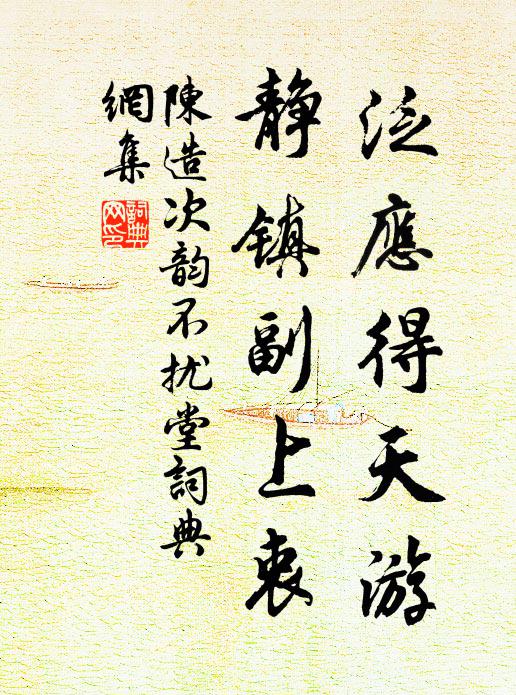 泛應得天游
静镇副上衷
陳造次韵不扰堂詞典
網集
詞典
网印